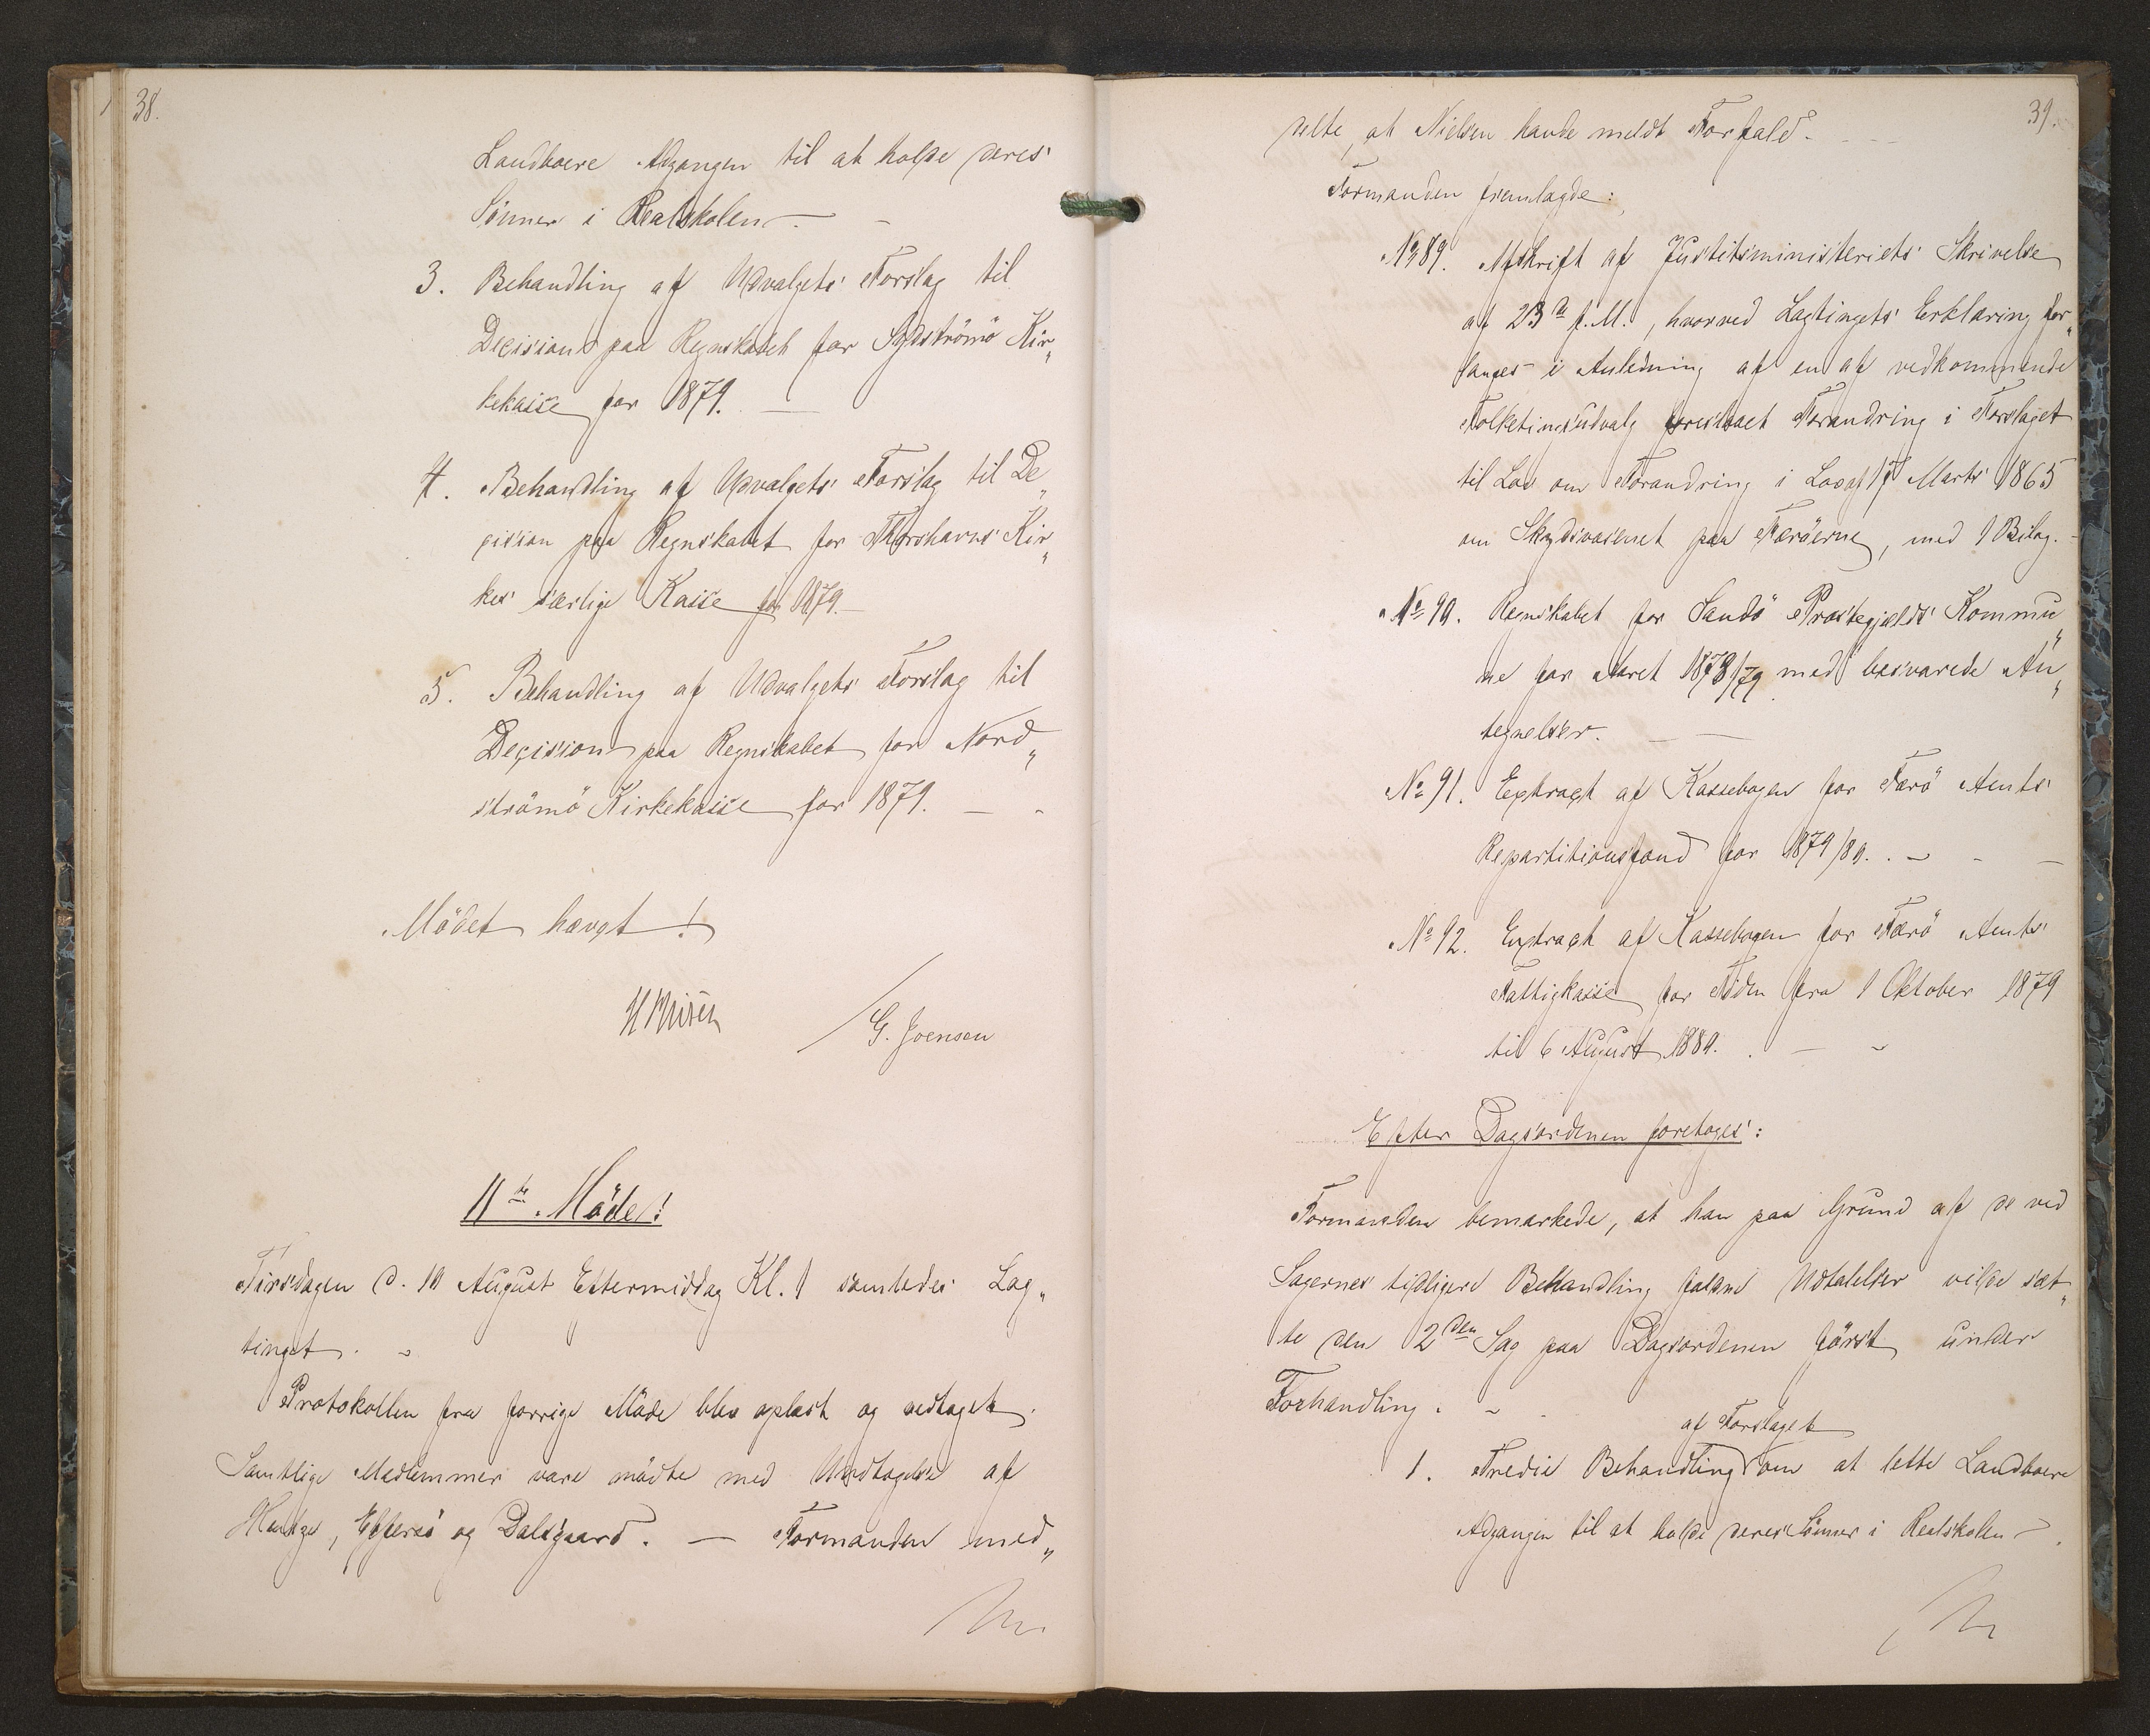 38.
Landboere Adgangen til at holde deres
Sönner i Realskolen. –
3. Behandling af Udvalgets Forslag til
Decision paa Regnskabet for Sydströmö Kir„
kekasse for 1879. —
4. Behandling af Udvalgets Forslag til De„
cision paa Regnskabet for Thorshavns Kir„
kes særlige Kasse for 1879. –
5. Behandling af Udvalgets Forslag til
Decision paa Regnskabet for Nord„
strömö Kirkekasse for 1879. – -
Mödet hævet!
G. Joensen
11te Möde!
Tirsdagen d. 10 August Eftermiddag Kl. 1 samledes Lag„
tinget. -
Protokollen fra forrige Möde blev oplæst og vedtaget.
Samtlige Medlemmer vare mödte med Undtagelse af
Hentze, Effersö og Dalsgaard. — Formanden med„
39.
delte, at Nielsen havde meldt Forfald. - - -
Formanden fremlagde:
No 89. Afskrift af Justitsministeriets Skrivelse
af 23de f. M., hvorved Lagtingets Erklæring for„
langes i Anledning af en af vedkommende
Folketingsudvalg foreslaaet Forandring i Forslaget
til Lov om Forandring i Lov af 17 Marts 1865
om Skydsvæsenet paa Færöerne, med 1 Bilag. -
No 90. Regnskabet for Sandö Præstegjælds Kommu„
ne for Aaret 1878/79 med besvarede An„
tegnelser. — —
No 91. Extract af Kassebogen for Færö Amts
Repartitionsfond for 1879/80. - - —
No 92. Extract af Kassebogen for Færö Amts
Fattigkasse for Tiden fra 1 Oktober 1879
til 6 August 1880. . — -
Efter Dagsordenen foretoges:
Formanden bemærkede, at han paa Grund af de ved
Sagernes tidligere Behandling faldne Udtalelser vilde sæt„
te den 2den Sag paa Dagsordenen först under
Forhandling. - -
af Forslaget
1. Tredie Behandling om at lette Landboere
Adgangen til at holde deres Sönner i Realskolen –.